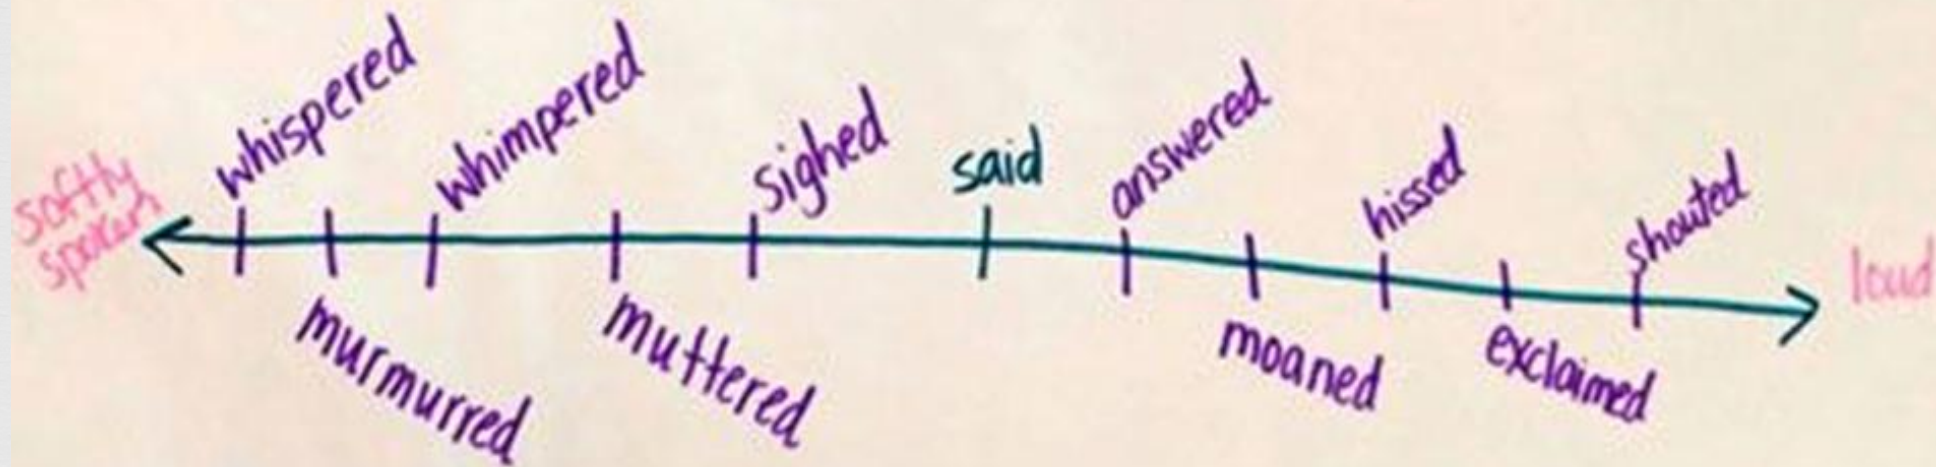 softly
spoken
whispered
murmurred
whimpered
muttered
sighed
said
answered
moaned
hissed
exclaimed
shouted
loud